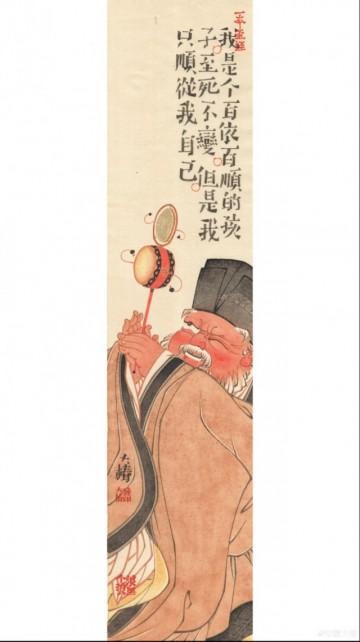 我是个百依百順的孩
子至死不變但是我
只順從我自己
大濤